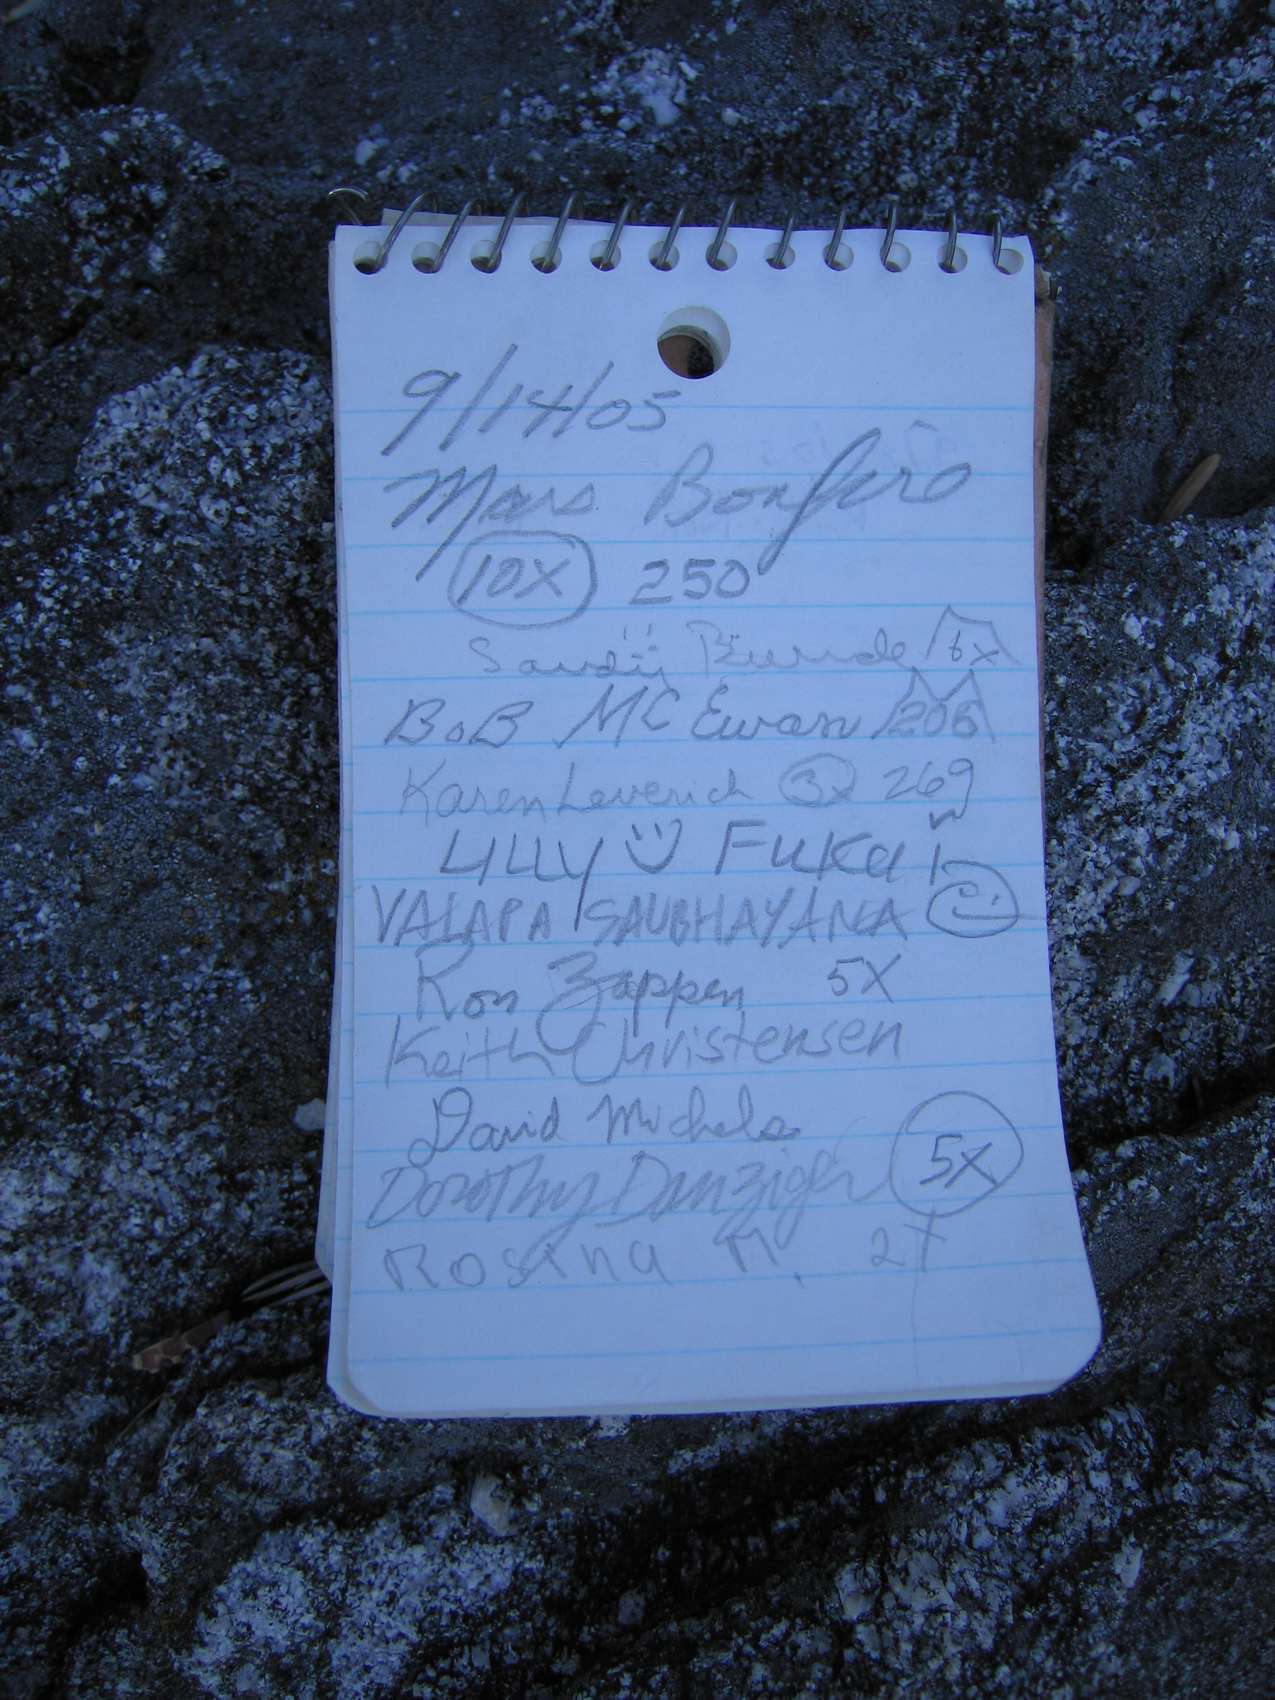 9/14/05
Mars Bonfire
10X 250
Sandy 6x
BoB MC Ewan 206
Karen Leverich 3x 269
LILLY FUKUI
VALAPA SAUBHAYANA
Ron Zappen 5X
Keith Christensen
David Michels
Dorothy Danziger 5X
Rosina M. 2X